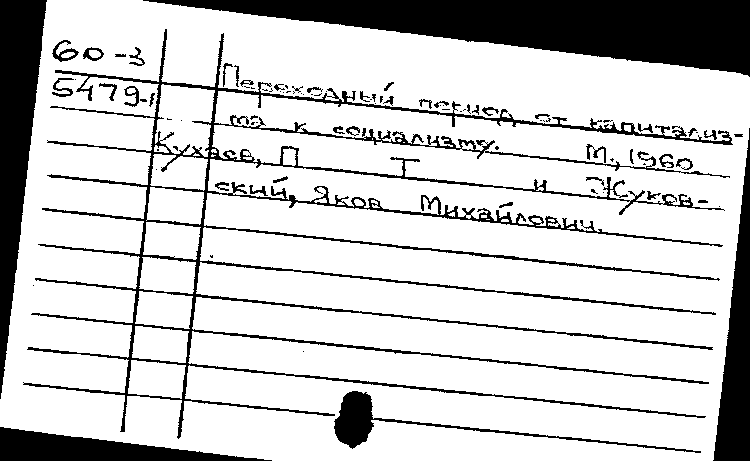 60-3
5479-1
Переходный период от капитализ-
ма к социализму. М., 1960.
Кухаев, П Т и Жуков-
ский, Яков Михайлович.